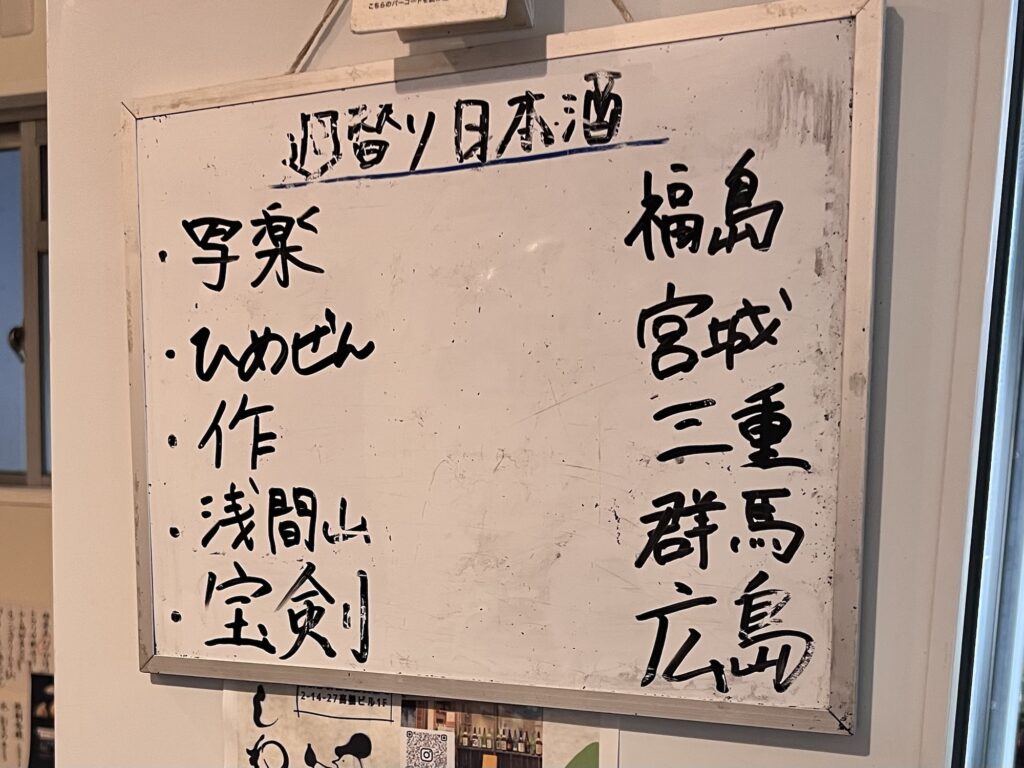 週替り日本酒
・写楽 福島
・ひめぜん 宮城
・作 三重
・浅間山 群馬
・宝剣 広島
2-14-27高橋ビル1F